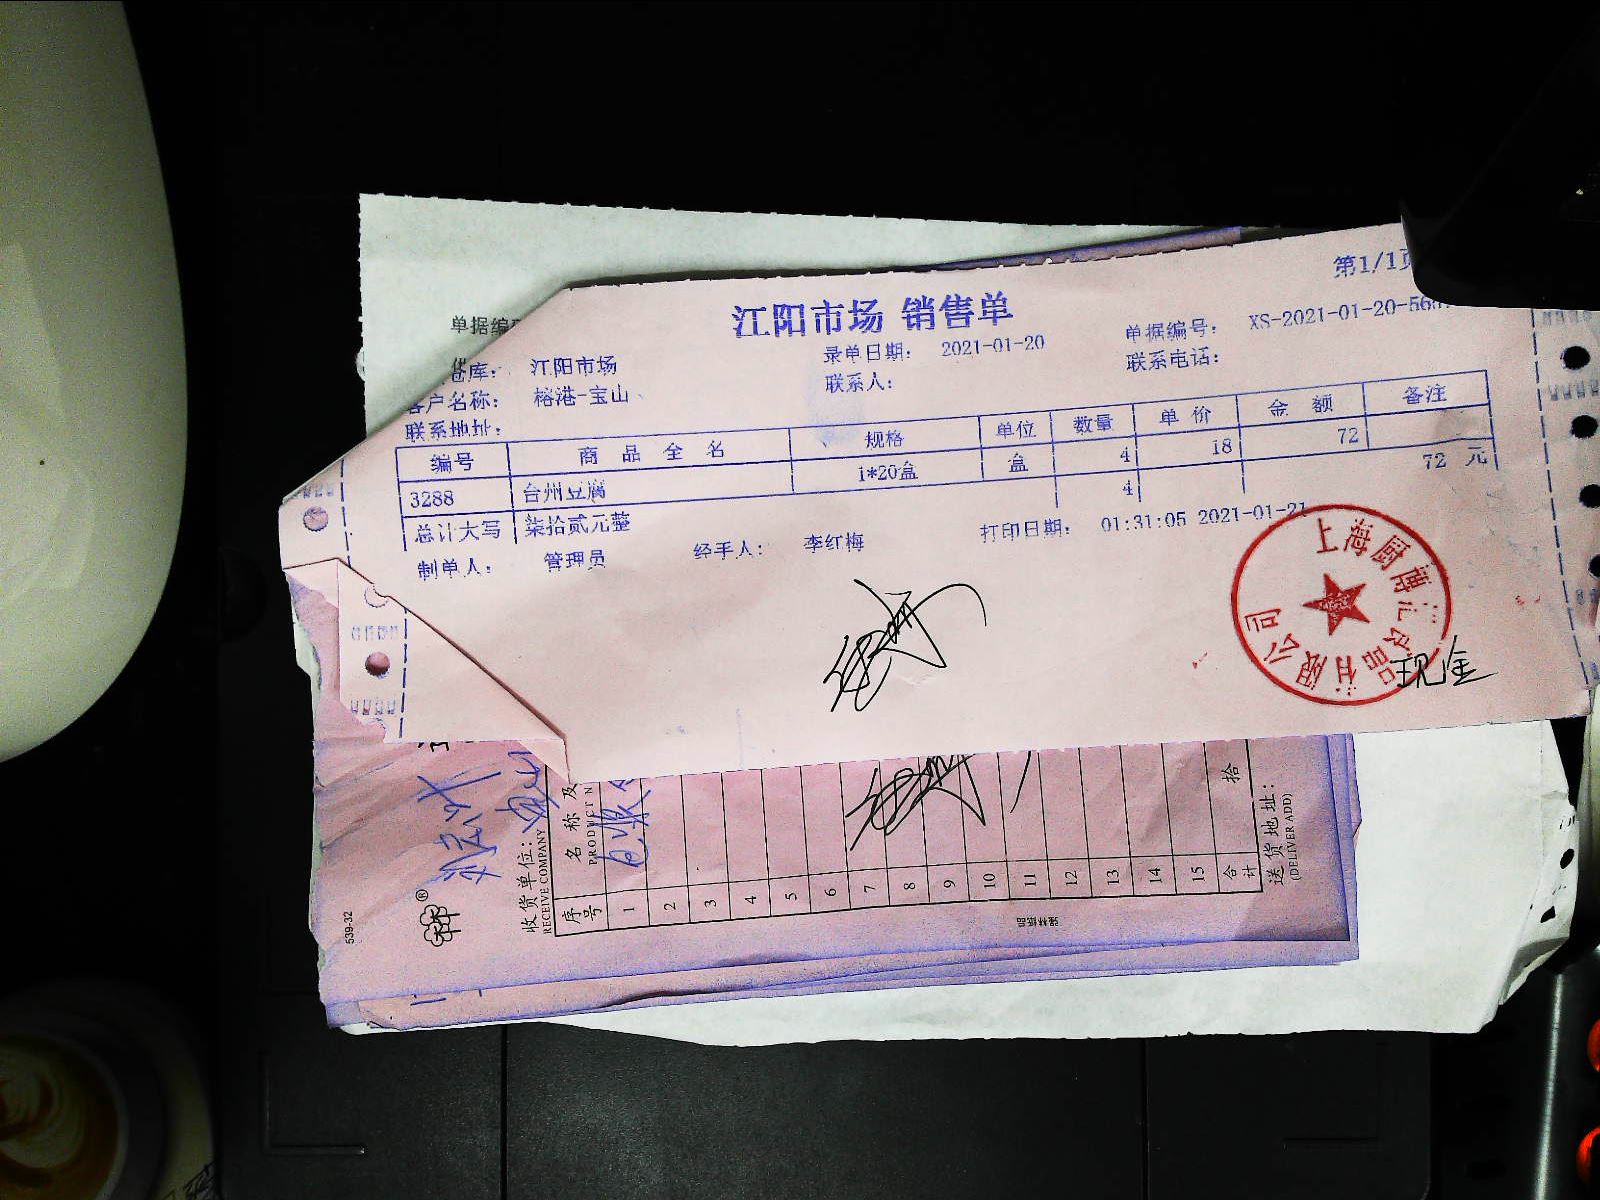 第1/1页
江阳市场 销售单
单据编
仓库： 江阳市场 录单日期： 2021-01-20 单据编号： XS-2021-01-20-56
客户名称： 榕港-宝山 联系人： 联系电话：
联系地址：
编号 商品全名 规格 单位 数量 单价 金额 备注
3288 台州豆腐 1*20盒 盒 4 18 72
总计大写 柒拾贰元整 4 72 元
制单人： 管理员 经手人： 李红梅 打印日期： 01:31:05 2021-01-21
上海厨博汇食品有限公司
现金
539-32
收货单位：
RECEIVE COMPANY
序号 名称及
PRODUCT N
1
2
3
4
5
6
7
8
9
10
11
12
13
14
15
合计 拾
送货地址：
(DELIVER ADD)